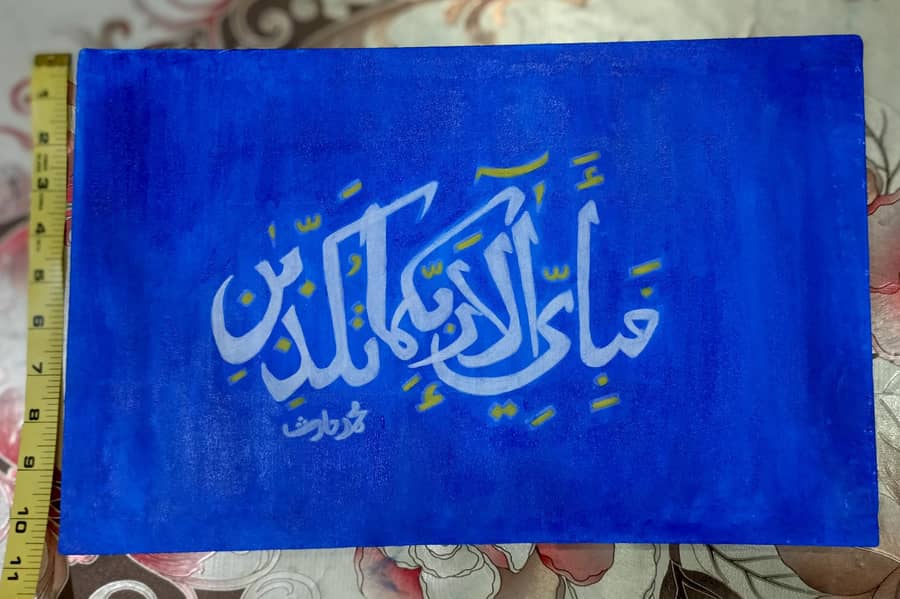 فَبِأَيِّ آلَاءِ رَبِّكُمَا تُكَذِّبَانِ
محمد حارث
1
2
3
4
5
6
7
8
9
10
11